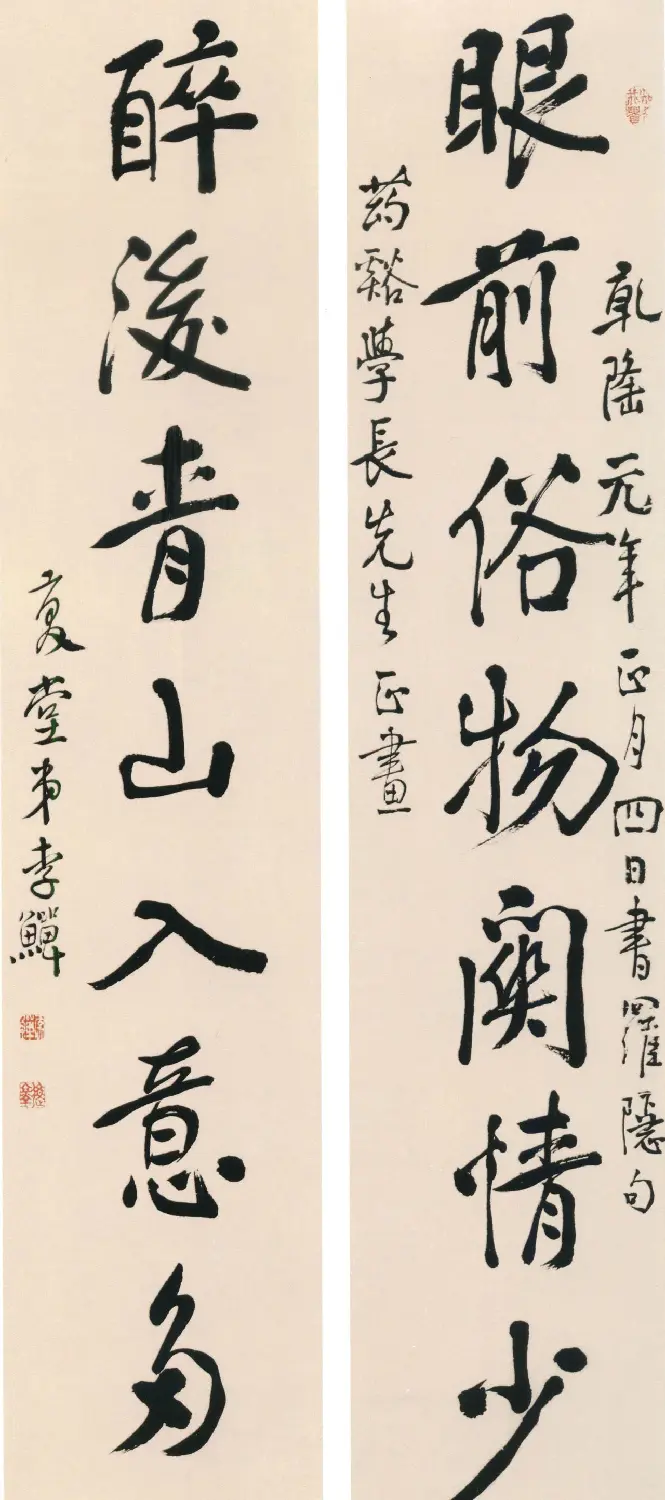 乾隆元年正月四日書羅隱句
眼前俗物關情少
葯谿學長先生正畫
醉後青山入意多
复堂弟李鱓